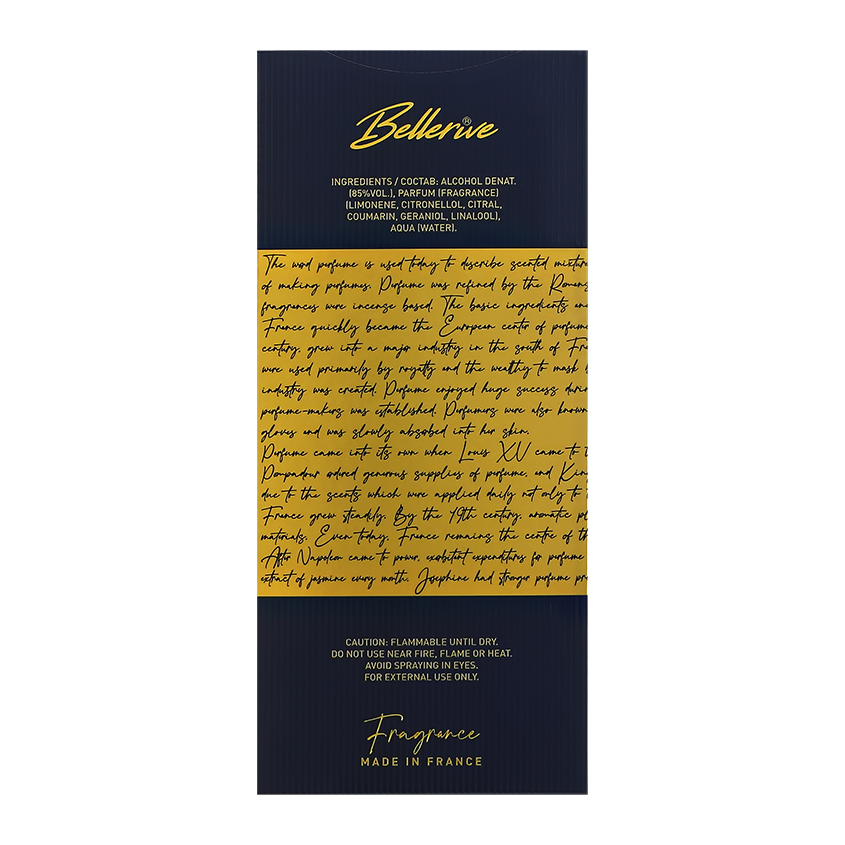 Bellerive®
INGREDIENTS / COCTAB: ALCOHOL DENAT.
(85%VOL.), PARFUM (FRAGRANCE)
(LIMONENE, CITRONELLOL, CITRAL,
COUMARIN, GERANIOL, LINALOOL),
AQUA (WATER).
The word perfume is used today to describe scented mixture
of making perfumes. Perfume was refined by the Romans
fragrances were incense based. The basic ingredients an
France quickly became the European center of perfume
century, grew into a major industry in the south of Fr
were used primarily by royalty and the wealthy to mask
industry was created. Perfume enjoyed huge success durin
perfume-makers was established. Perfumers were also known
gloves and was slowly absorbed into her skin.
Perfume came into its own when Louis XV came to t
Pompadour ordered generous supplies of perfume, and Kin
due to the scents which were applied daily not only to
France grew steadily. By the 19th century, aromatic pl
materials. Even today, France remains the centre of th
After Napoleon came to power, exorbitant expenditures for perfume
extract of jasmine every month. Josephine had stronger perfume pr
CAUTION: FLAMMABLE UNTIL DRY.
DO NOT USE NEAR FIRE, FLAME OR HEAT.
AVOID SPRAYING IN EYES.
FOR EXTERNAL USE ONLY.
Fragrance
MADE IN FRANCE